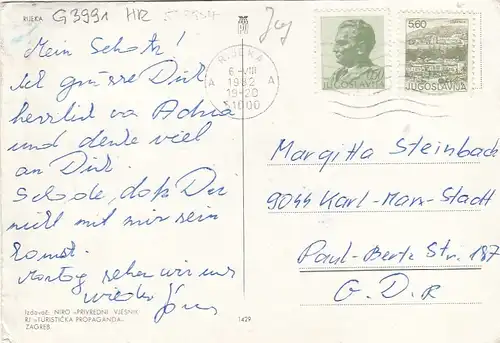 RIJEKA
G3991 HR
Jug
RIJEKA
6-VIII
1982
19-20
51000
A A
JUGOSLAVIJA
5,60
JUGOSLAVIJA
Mein Schatz!
Ich grüsse Dich
herzlich va Adria
und denke viel
an Dich.
Schade, daß Du
nicht mit mir sein
konnst.
Montag sehen wir uns
wieder
Margitta Steinbach
9044 Karl-Marx-Stadt
Paul-Bertz Str. 187
G. D. R
Izdavač: NIRO »PRIVREDNI VJESNIK
RJ »TURISTIČKA PROPAGANDA«
ZAGREB
1429